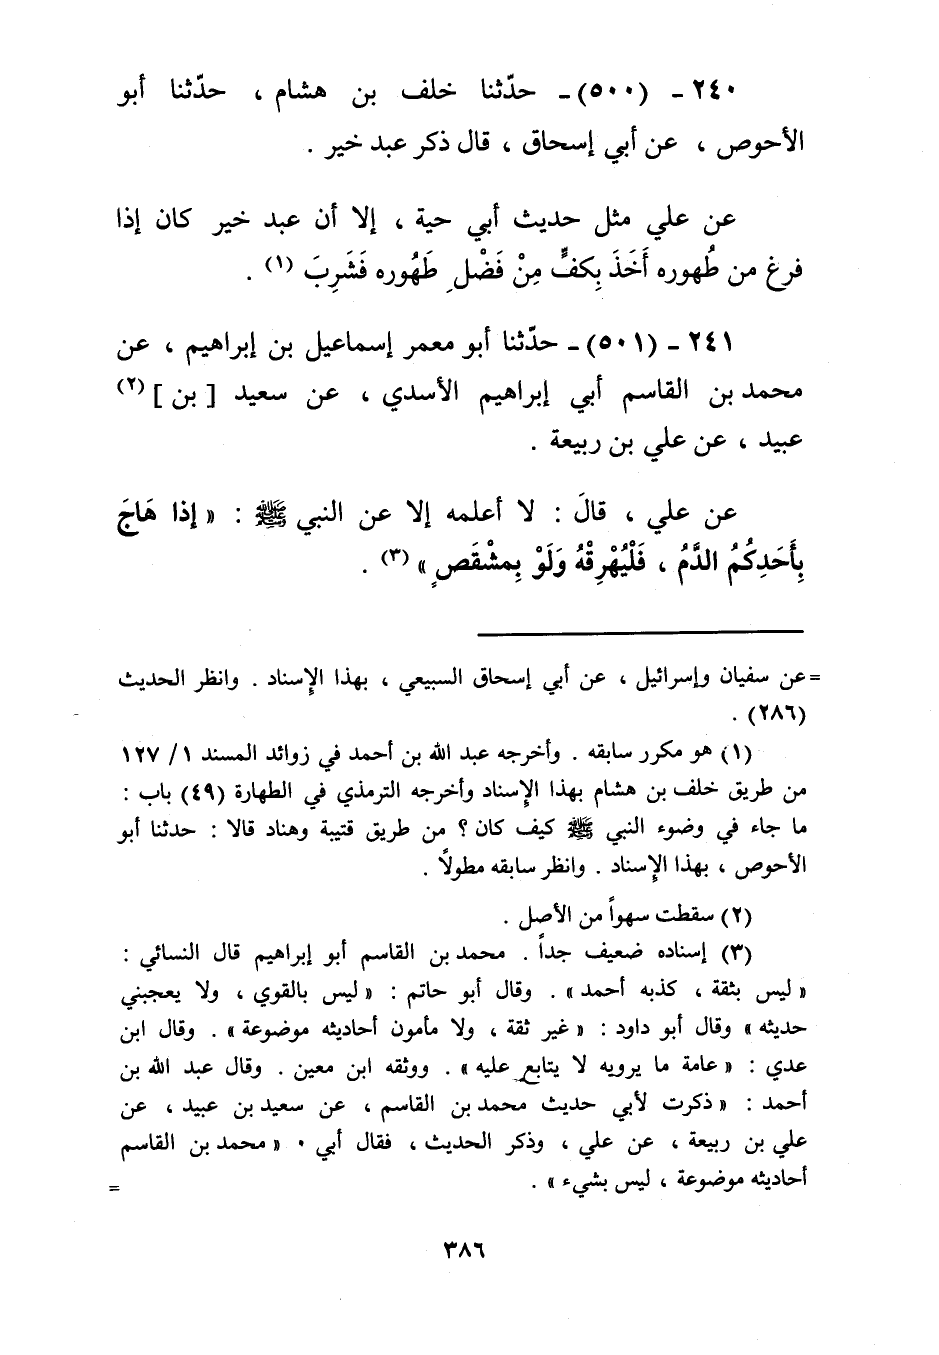 ٢٤٠ - (٥٠٠) - حدّثنا خلف بن هشام ، حدّثنا أبو
الأحوص ، عن أبي إسحاق ، قال ذكر عبد خير .
عن علي مثل حديث أبي حية ، إلا أن عبد خير كان إذا
فرغ من طُهوره أَخَذَ بِكفٍّ مِنْ فَضْلِ طَهُوره فَشَرِبَ (١) .
٢٤١ - (٥٠١) - حدّثنا أبو معمر إسماعيل بن إبراهيم ، عن
محمد بن القاسم أبي إبراهيم الأسدي ، عن سعيد [ بن ] (٢)
عبيد ، عن علي بن ربيعة .
عن علي ، قالَ : لا أعلمه إلا عن النبي ﷺ : « إذا هَاجَ
بِأَحَدِكُمُ الدَّمُ ، فَلْيُهْرِقْهُ وَلَوْ بِمشْقَصٍ » (٣) .
=عن سفيان وإسرائيل ، عن أبي إسحاق السبيعي ، بهذا الإِسناد . وانظر الحديث
(٢٨٦) .
(١) هو مكرر سابقه . وأخرجه عبد الله بن أحمد في زوائد المسند ١ / ١٢٧
من طريق خلف بن هشام بهذا الإِسناد وأخرجه الترمذي في الطهارة (٤٩) باب :
ما جاء في وضوء النبي ﷺ كيف كان ؟ من طريق قتيبة وهناد قالا : حدثنا أبو
الأحوص ، بهذا الإِسناد . وانظر سابقه مطولاً .
(٢) سقطت سهواً من الأصل .
(٣) إسناده ضعيف جداً . محمد بن القاسم أبو إبراهيم قال النسائي :
« ليس بثقة ، كذبه أحمد » . وقال أبو حاتم : « ليس بالقوي ، ولا يعجبني
حديثه » وقال أبو داود : « غير ثقة ، ولا مأمون أحاديثه موضوعة » . وقال ابن
عدي : « عامة ما يرويه لا يتابع عليه » . ووثقه ابن معين . وقال عبد الله بن
أحمد : « ذكرت لأبي حديث محمد بن القاسم ، عن سعيد بن عبيد ، عن
علي بن ربيعة ، عن علي ، وذكر الحديث ، فقال أبي . « محمد بن القاسم
أحاديثه موضوعة ، ليس بشيء » . =
٣٨٦